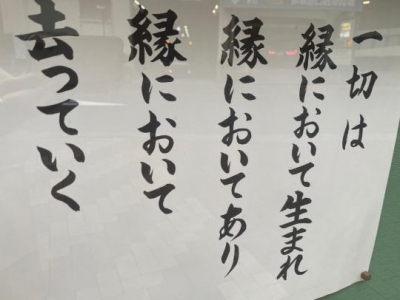 一切は
縁において生まれ
縁においてあり
縁において
去っていく